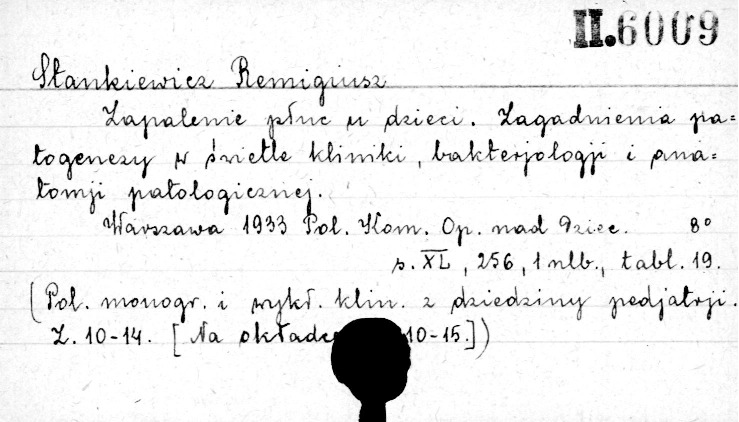 II.6009
Stankiewicz Remigiusz
Zapalenie płuc u dzieci. Zagadnienia pa=
togenezy w świetle kliniki, bakterjologji i ana=
tomji patologicznej.
Warszawa 1933 Pol. Kom. Op. nad Dziec. 8°
s. XL, 256, 1 nlb., tabl. 19.
(Pol. monogr. i wykł. klin. z dziedziny pedjatrji.
Z. 10-14. [Na okładce 10-15.])